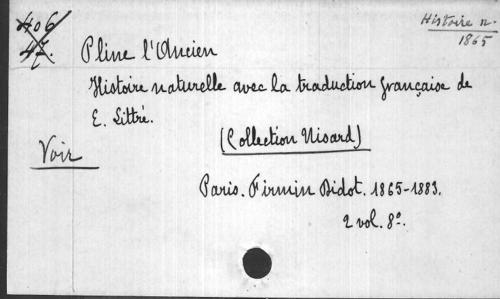 406
47.
Histoire n.
1865
Pline l'Ancien
Histoire naturelle avec la traduction française de
E. Littré.
Voir
(Collection Nisard)
Paris. Firmin Didot. 1865-1883.
2 vol. 8º.